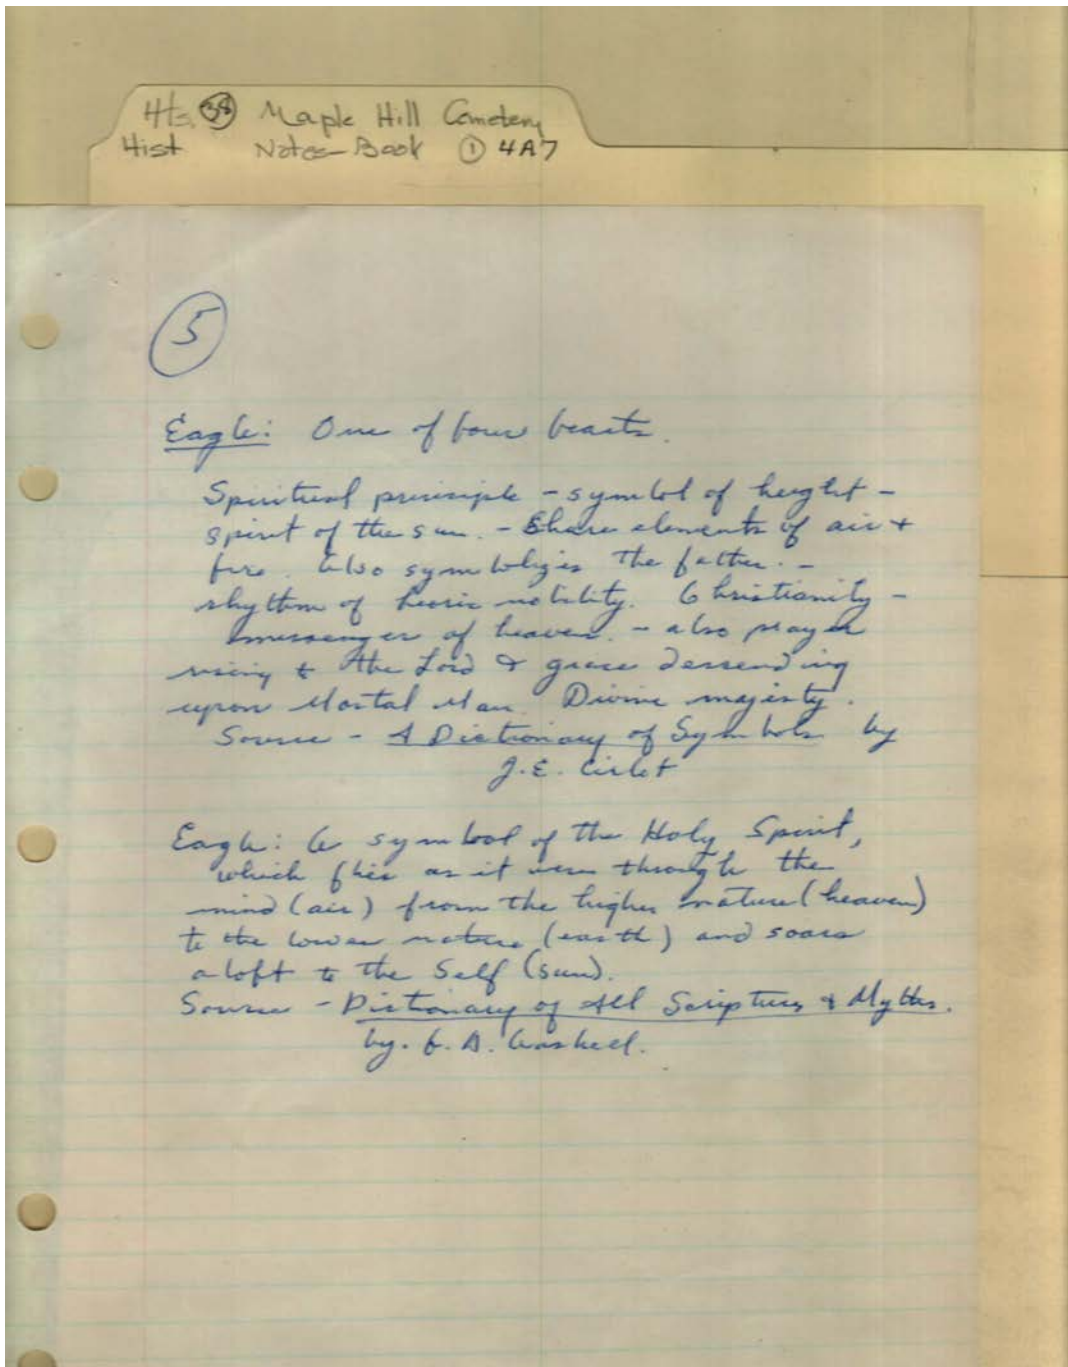 Hts. 38 Maple Hill Cemetery
Hist Notes-Book ① 4A7
5
Eagle: One of four beasts.
Spiritual principle - symbol of height -
spirit of the sun. - Share elements of air +
fire. Also symbolizes the father. -
rhythm of heoric nobility. Christianity -
messenger of heaven. - also prayer
rising to the Lord & grace descending
upon Mortal Man. Divine majesty.
Source - A Dictionary of Symbols by
J.E. Cirlot
Eagle: A symbol of the Holy Spirit,
which flies as it were through the
mind (air) from the higher nature (heaven)
to the lower nature (earth) and soars
aloft to the Self (sun).
Source - Dictionary of All Scriptures & Myths.
by. G. A. Gaskell.